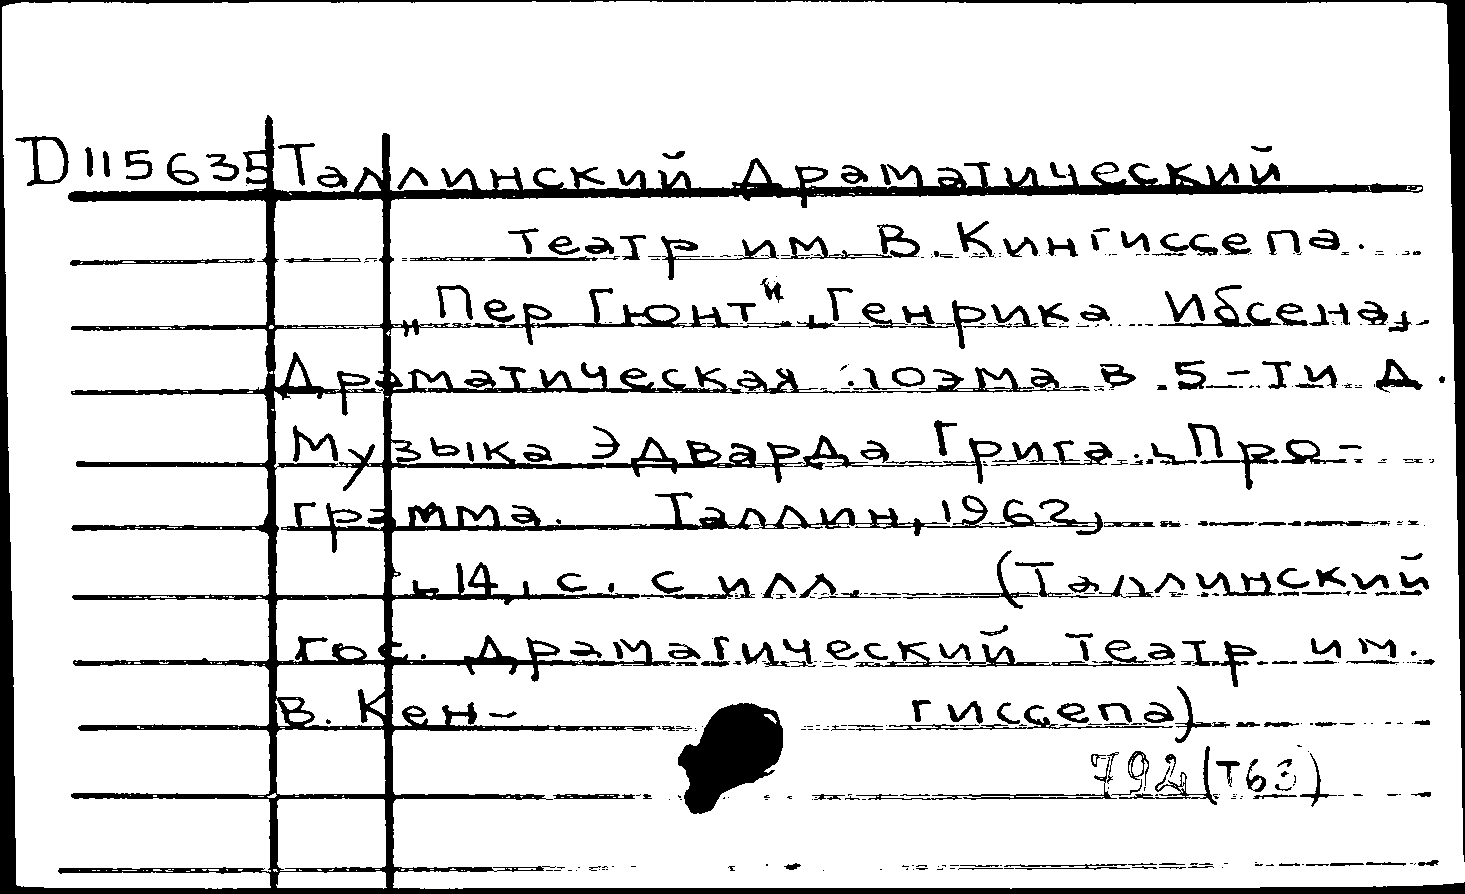 D 115635 Таллинский Драматический
театр им. В. Кингиссепа.
„Пер Гюнт". Генрика Ибсена,
Драматическая поэма в 5-ти д.
Музыка Эдварда Грига. Про-
грамма. Таллин, 1962,
14, с. с илл. (Таллинский
гос. Драматический театр им.
В. Кен- гиссепа)
792(Т63)